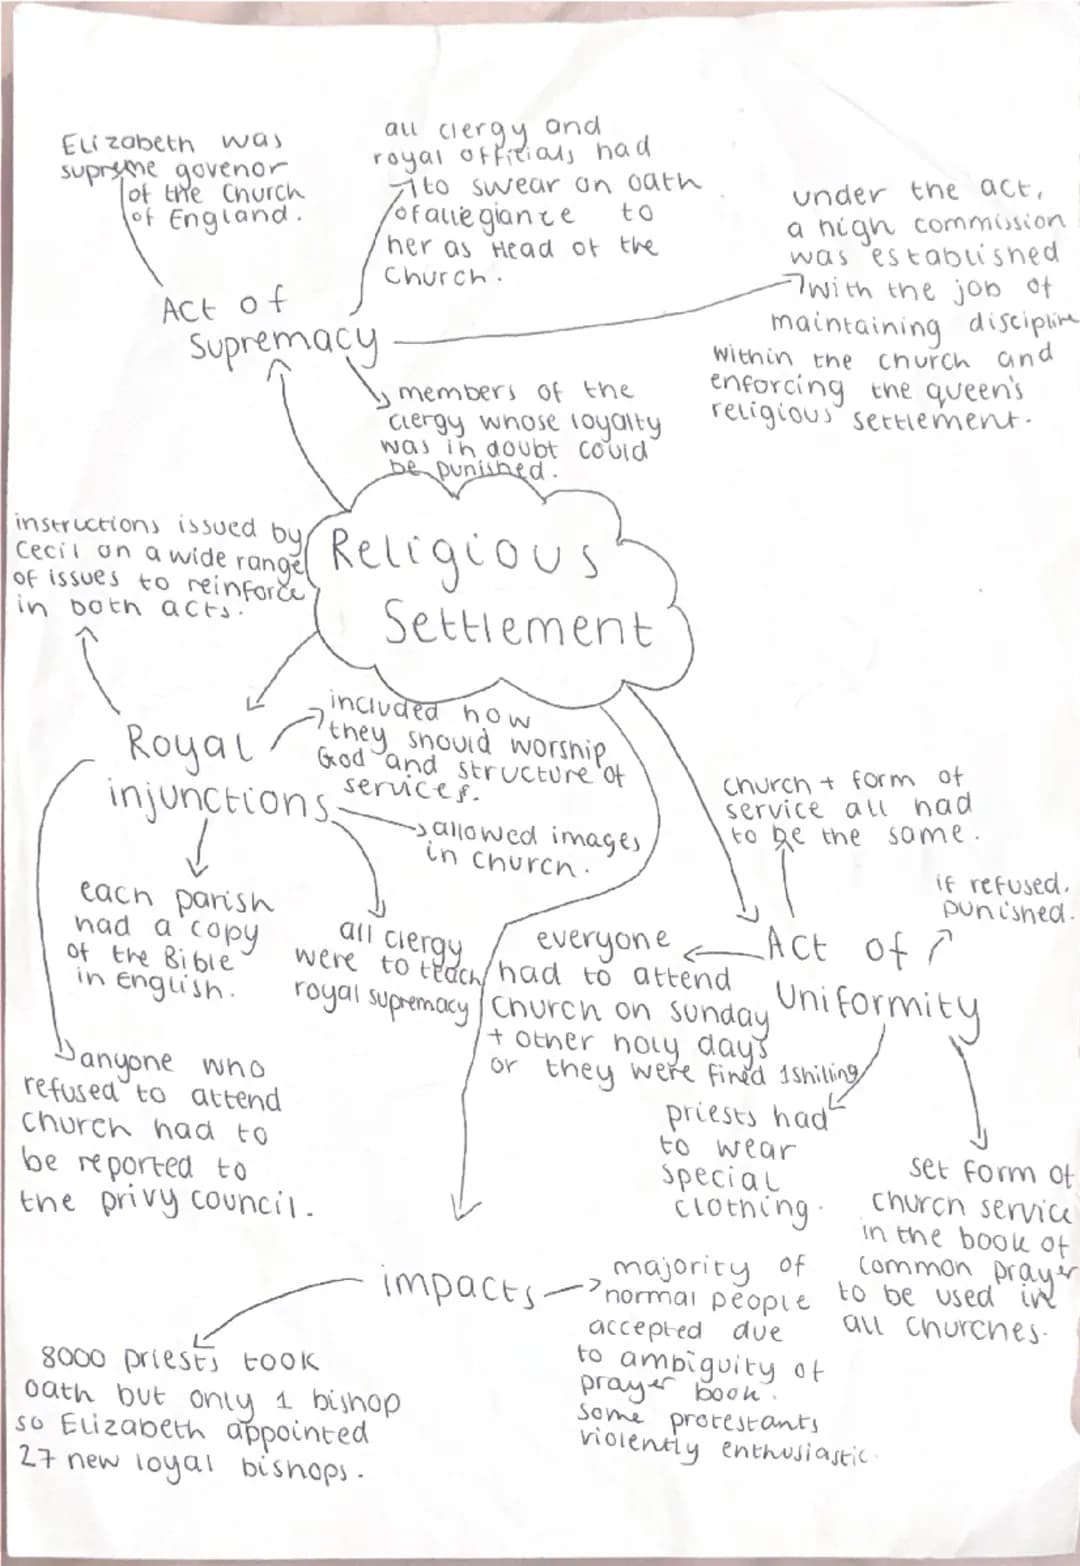 Elizabeth was
supreme govenor
of the Church
of England.
all clergy and
royal offitials had
to swear an oath
of allegiance to
her as Head of the
Church.
under the act,
a high commission
was established
with the job of
maintaining discipline
within the church and
enforcing the queen's
religious settlement.
Act of
Supremacy
members of the
clergy whose loyalty
was in doubt could
be punished.
Religious
Settlement
instructions issued by
Cecil on a wide range
of issues to reinforce
in both acts.
Royal
injunctions
included how
they should worship
God and structure of
services.
allowed images
in church.
each parish
had a copy
of the Bible
in English.
all clergy
were to teach
royal supremacy
anyone who
refused to attend
church had to
be reported to
the privy council.
church + form of
service all had
to be the same.
if refused,
punished.
Act of
Uniformity
everyone
had to attend
Church on Sunday
+ other holy days
or they were fined 1 shilling
priests had
to wear
special
clothing.
set form of
church service
in the book of
common prayer
to be used in
all churches.
impacts
8000 priests took
oath but only 1 bishop
so Elizabeth appointed
27 new loyal bishops.
majority of
normal people
accepted due
to ambiguity of
prayer book.
some protestants
violently enthusiastic.